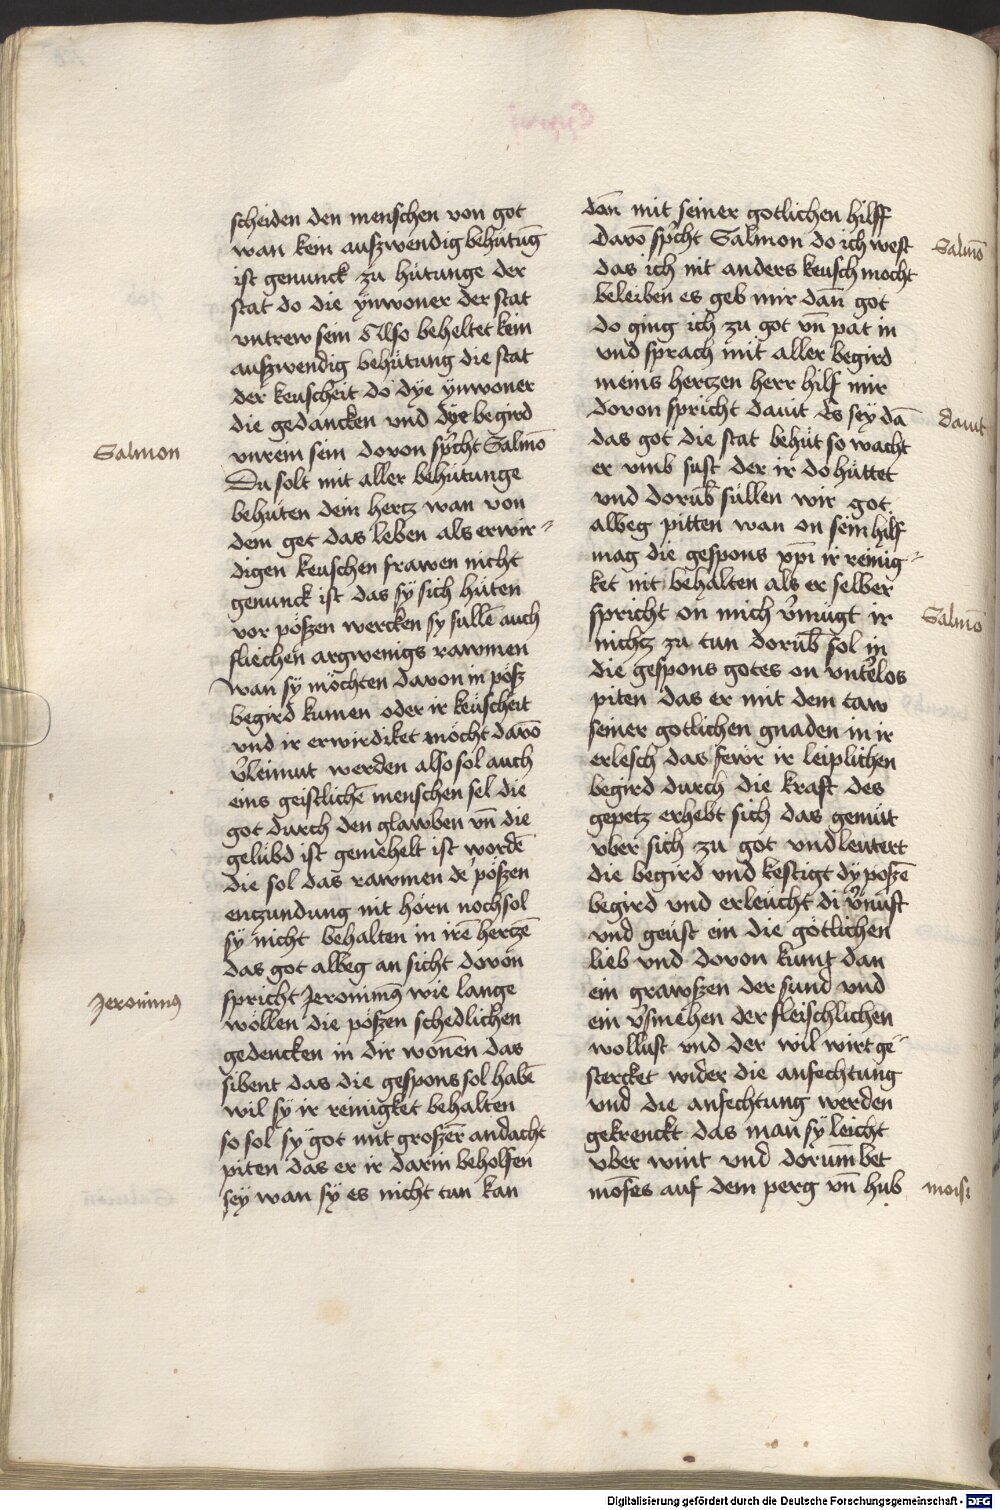 scheiden den menschen von got
wan kein auszwendig behütūg
ist genunck zu hütunge der
stat do die ynwoner der stat
vntrew sein Also beheltet kein
auszwendig behütung die stat
der keuscheit do dye ynwoner
die gedancken vnd dye begird
vnrein sein doron sprcht Salmō
Salmon
Du solt mit aller behütunge
behüten dein hertz wan von
dem get das leben als erwir=
digen keuschen frawen nicht
genunck ist das sy sich hüten
vor pöszen wercken sy sullē auch
fliechen argwenigs rawmen
wan sy möchten davon in pösz
begird kumen oder ir keuscheit
vnd ir erwirdiket möcht davō
v̄leimut werden also sol auch
eins geistlichē menschen sel die
got durch den glawben vn̄ die
gelübd ist gemehelt ist wordē
die sol das rawmen de' pöszen
enczundung nit hörn noch sol
sy nicht behalten in irē hertzē
das got albeg an sicht doron
spricht Jeronimꝰ wie lange
Jeronimus
wöllen die pöszen schedlichen
gedencken in dir wonen das
sibent das die gespons sol habē
wil sy ir reinigket behalten
so sol sy got mit groszer andacht
piten das er ir darin beholfen
sey wan sy es nicht tun kan
dan mit seiner gotlichen hilff
Davō sprcht Salmon do ich west
Salmō
das ich nit anders keusch mocht
beleiben es geb mir dan got
do ging ich zu got vn̄ pat in
vnd sprach mit aller begird
meins hertzen herr hilf mir
doron spricht dauit Es sey dā
dauit
das got die stat behüt so wacht
er vmb sust der ir do hüttet
vnd dorūb süllen wir got
albeg pitten wan on sein hilf
mag die gespons xp̄i ir reinig=
ket nit behalten als er selber
spricht on mich v̄mügt ir
Salmō
nichtz zu tun dorūb sol in
die gespons gotes on vnt'los
piten das er mit dem taw
seiner gotlichen gnaden in ir
erlesch das fewr ir leiplichen
begird durch die kraft des
gepetz erhebt sich das gemüt
vber sich zu got vnd leutert
die begird vnd kestigt dy poszē
begird vnd erleucht di v̄nuft
vnd geust ein die götlichen
lieb vnd doron kumt dan
ein grawszen der sund vnd
ein v̄smehen der fleischlichen
wollust vnd der wil wirt ge=
stercket wider die anfechtung
vnd die anfechtung werden
gekrenckt das man sy leicht
vber wint vnd dorum̄ bet
moses auf dem perg vn̄ hub
moisi
Digitalisierung gefördert durch die Deutsche Forschungsgemeinschaft - DFG